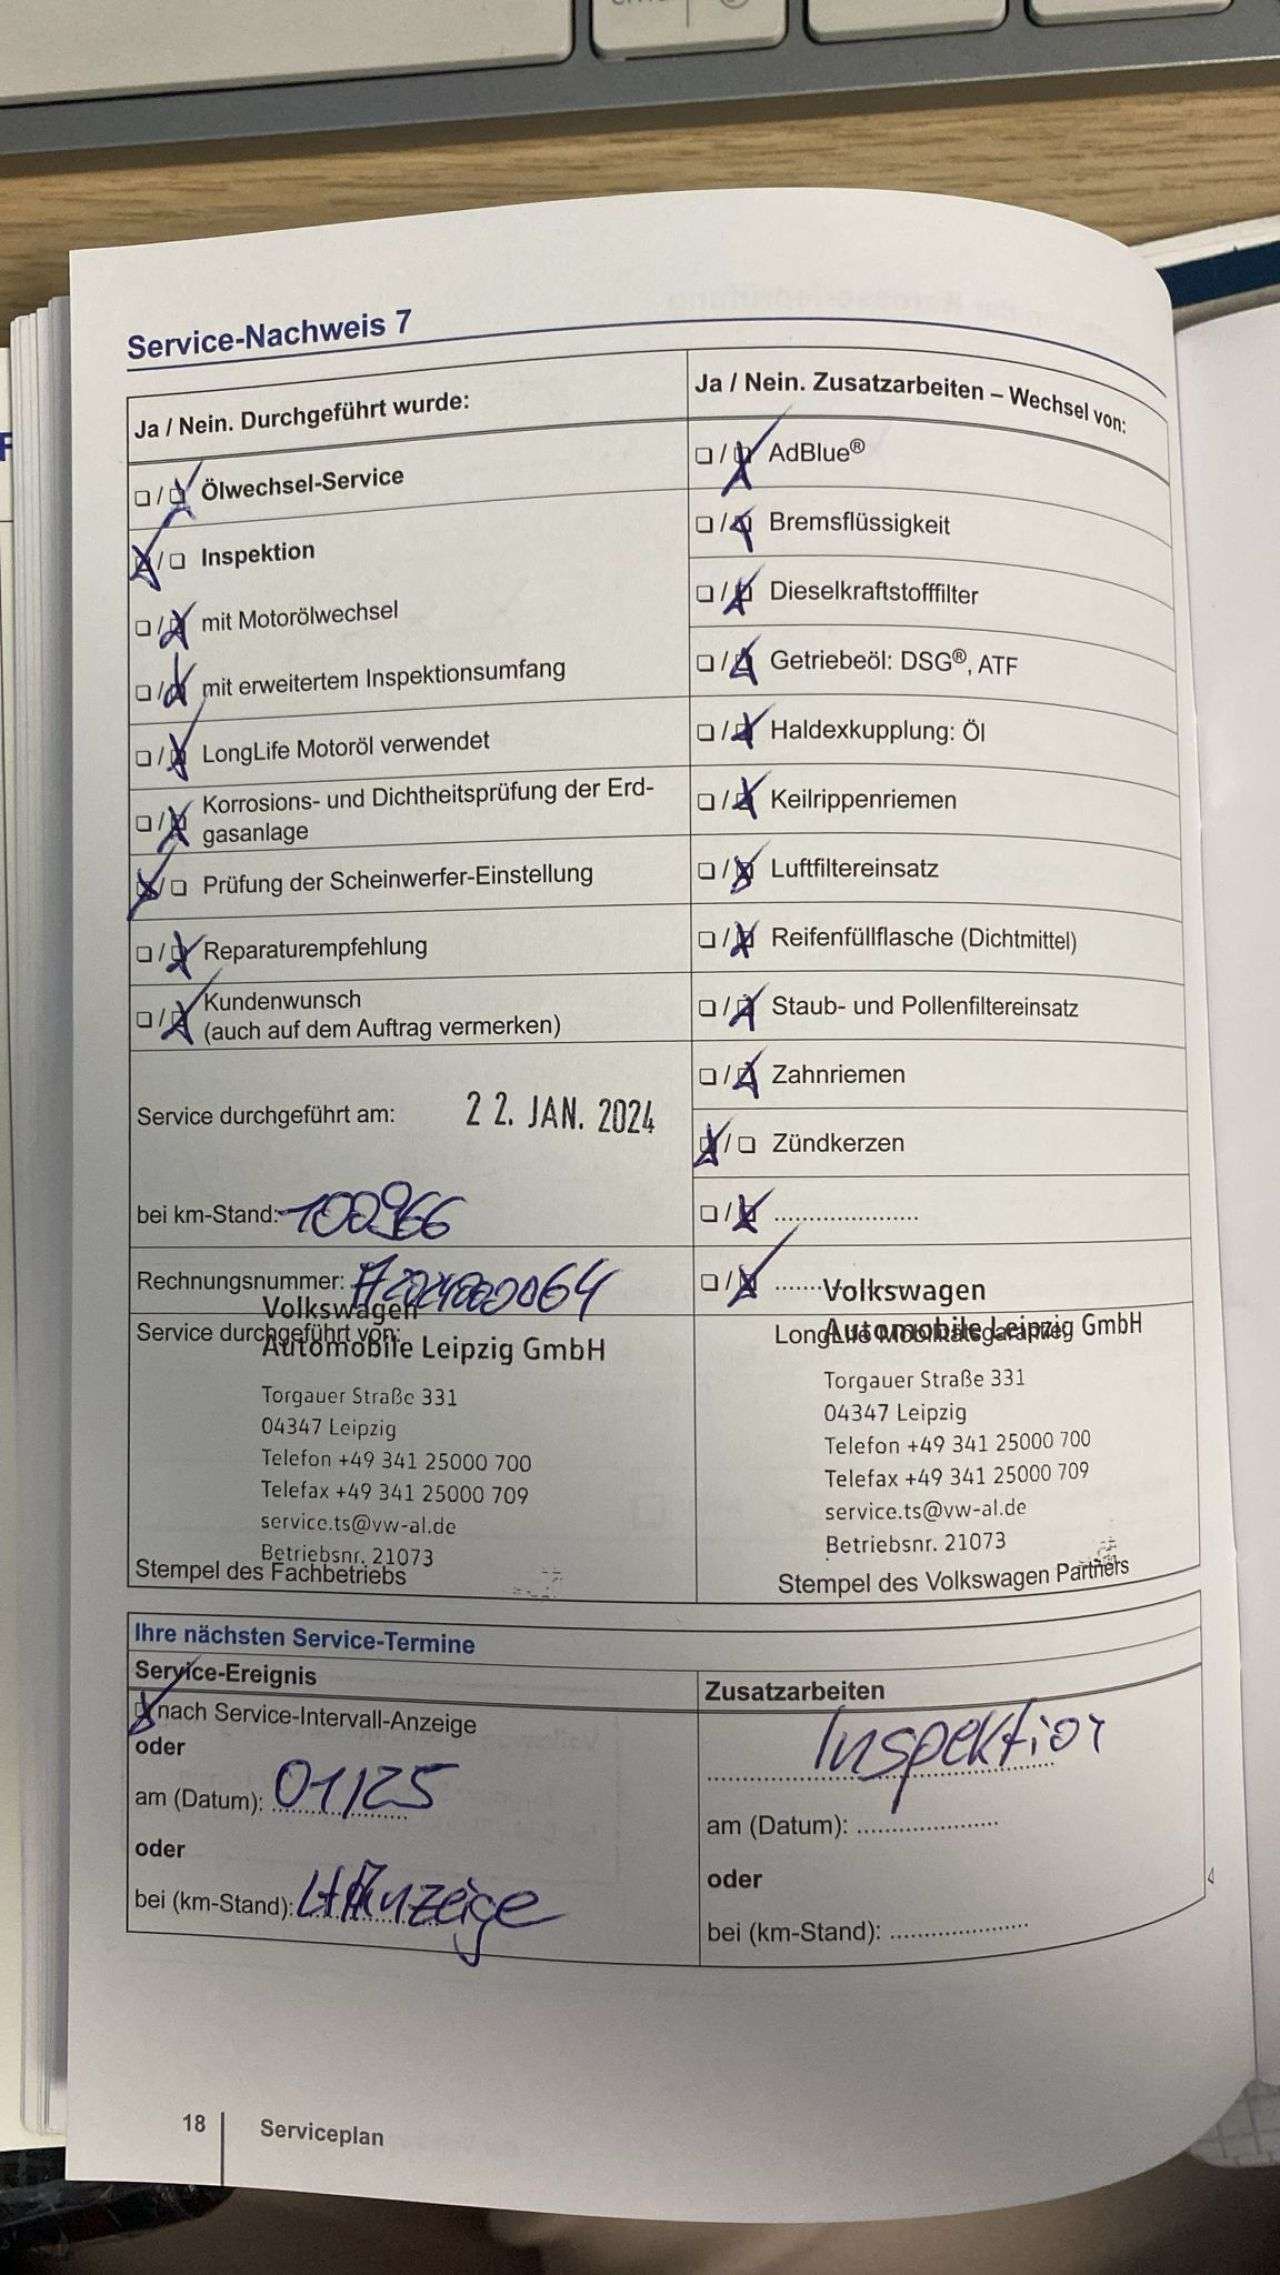 Service-Nachweis 7
Ja / Nein. Durchgeführt wurde:
Ölwechsel-Service
Inspektion
mit Motorölwechsel
mit erweitertem Inspektionsumfang
LongLife Motoröl verwendet
Korrosions- und Dichtheitsprüfung der Erd-
gasanlage
Prüfung der Scheinwerfer-Einstellung
Reparaturempfehlung
Kundenwunsch
(auch auf dem Auftrag vermerken)
Service durchgeführt am: 22. JAN. 2024
bei km-Stand: 100966
Rechnungsnummer:
Ja / Nein. Zusatzarbeiten – Wechsel von:
AdBlue®
Bremsflüssigkeit
Dieselkraftstofffilter
Getriebeöl: DSG®, ATF
Haldexkupplung: Öl
Keilrippenriemen
Luftfiltereinsatz
Reifenfüllflasche (Dichtmittel)
Staub- und Pollenfiltereinsatz
Zahnriemen
Zündkerzen
Volkswagen
Service durchgeführt von:
Automobile Leipzig GmbH
Torgauer Straße 331
04347 Leipzig
Telefon +49 341 25000 700
Telefax +49 341 25000 709
service.ts@vw-al.de
Betriebsnr. 21073
Stempel des Fachbetriebs
Volkswagen
LongLife Mobilitätsgarantie:
Automobile Leipzig GmbH
Torgauer Straße 331
04347 Leipzig
Telefon +49 341 25000 700
Telefax +49 341 25000 709
service.ts@vw-al.de
Betriebsnr. 21073
Stempel des Volkswagen Partners
Ihre nächsten Service-Termine
Service-Ereignis
nach Service-Intervall-Anzeige
oder
am (Datum): 01/25
oder
bei (km-Stand): Anzeige
Zusatzarbeiten
Inspektion
am (Datum):
oder
bei (km-Stand):
18
Serviceplan